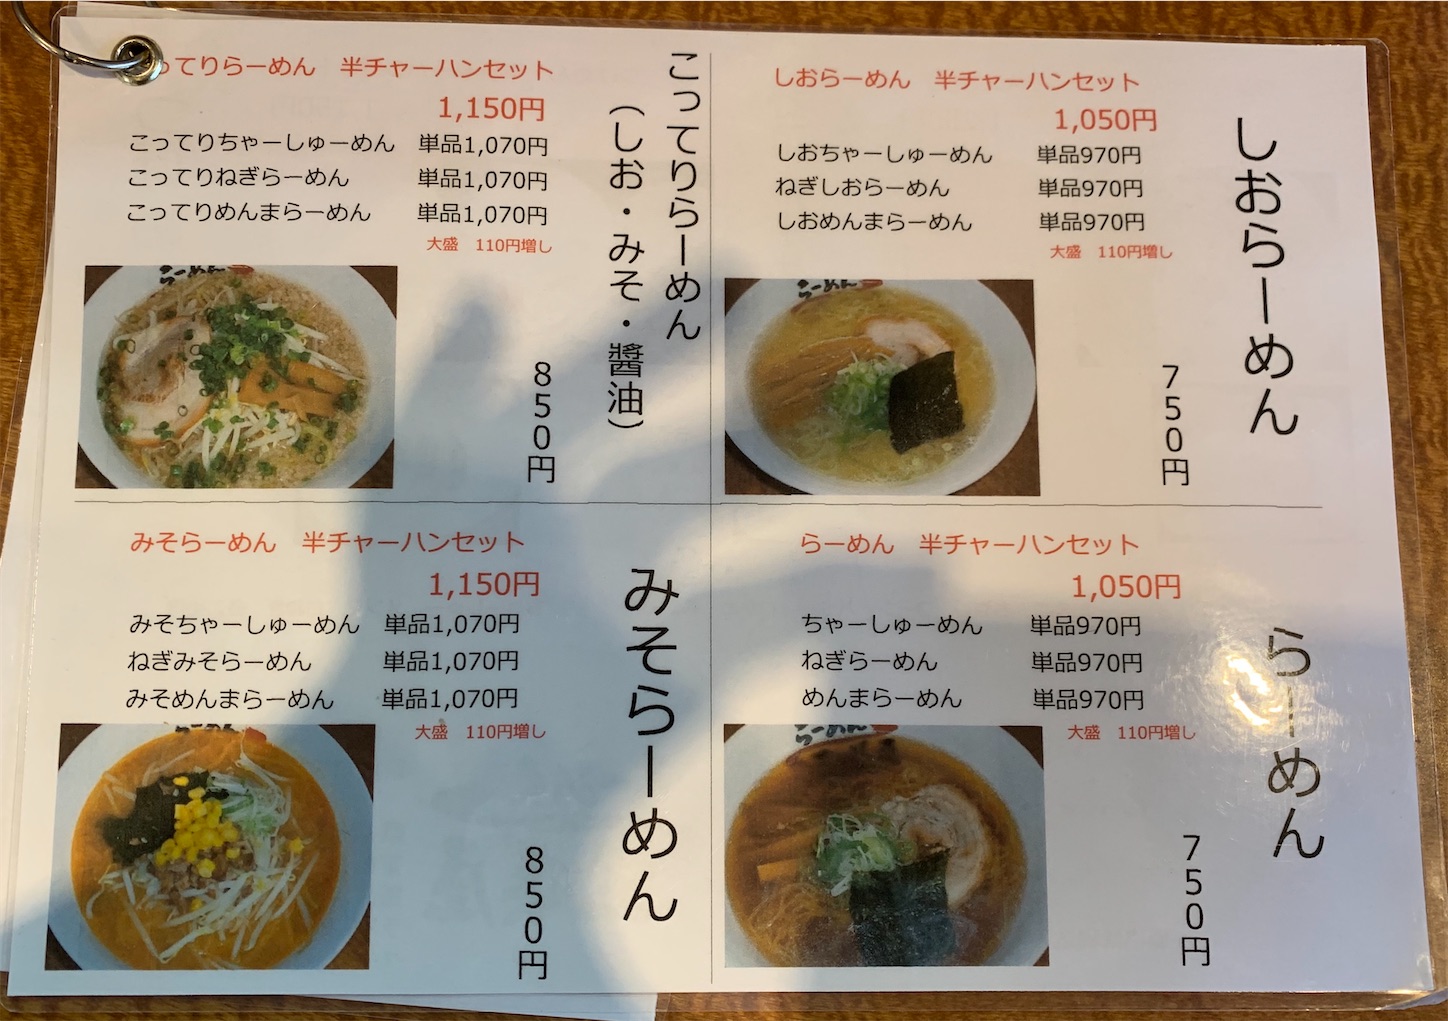 ってりらーめん 半チャーハンセット
1,150円
こってりちゃーしゅーめん 単品1,070円
こってりねぎらーめん 単品1,070円
こってりめんまらーめん 単品1,070円
大盛 110円増し
こってりらーめん
（しお・みそ・醬油）
850円
らーめん
しおらーめん 半チャーハンセット
1,050円
しおちゃーしゅーめん 単品970円
ねぎしおらーめん 単品970円
しおめんまらーめん 単品970円
大盛 110円増し
しおらーめん
750円
らーめん
みそらーめん 半チャーハンセット
1,150円
みそちゃーしゅーめん 単品1,070円
ねぎみそらーめん 単品1,070円
みそめんまらーめん 単品1,070円
大盛 110円増し
みそらーめん
850円
らーめん 半チャーハンセット
1,050円
ちゃーしゅーめん 単品970円
ねぎらーめん 単品970円
めんまらーめん 単品970円
大盛 110円増し
らーめん
750円
らーめん